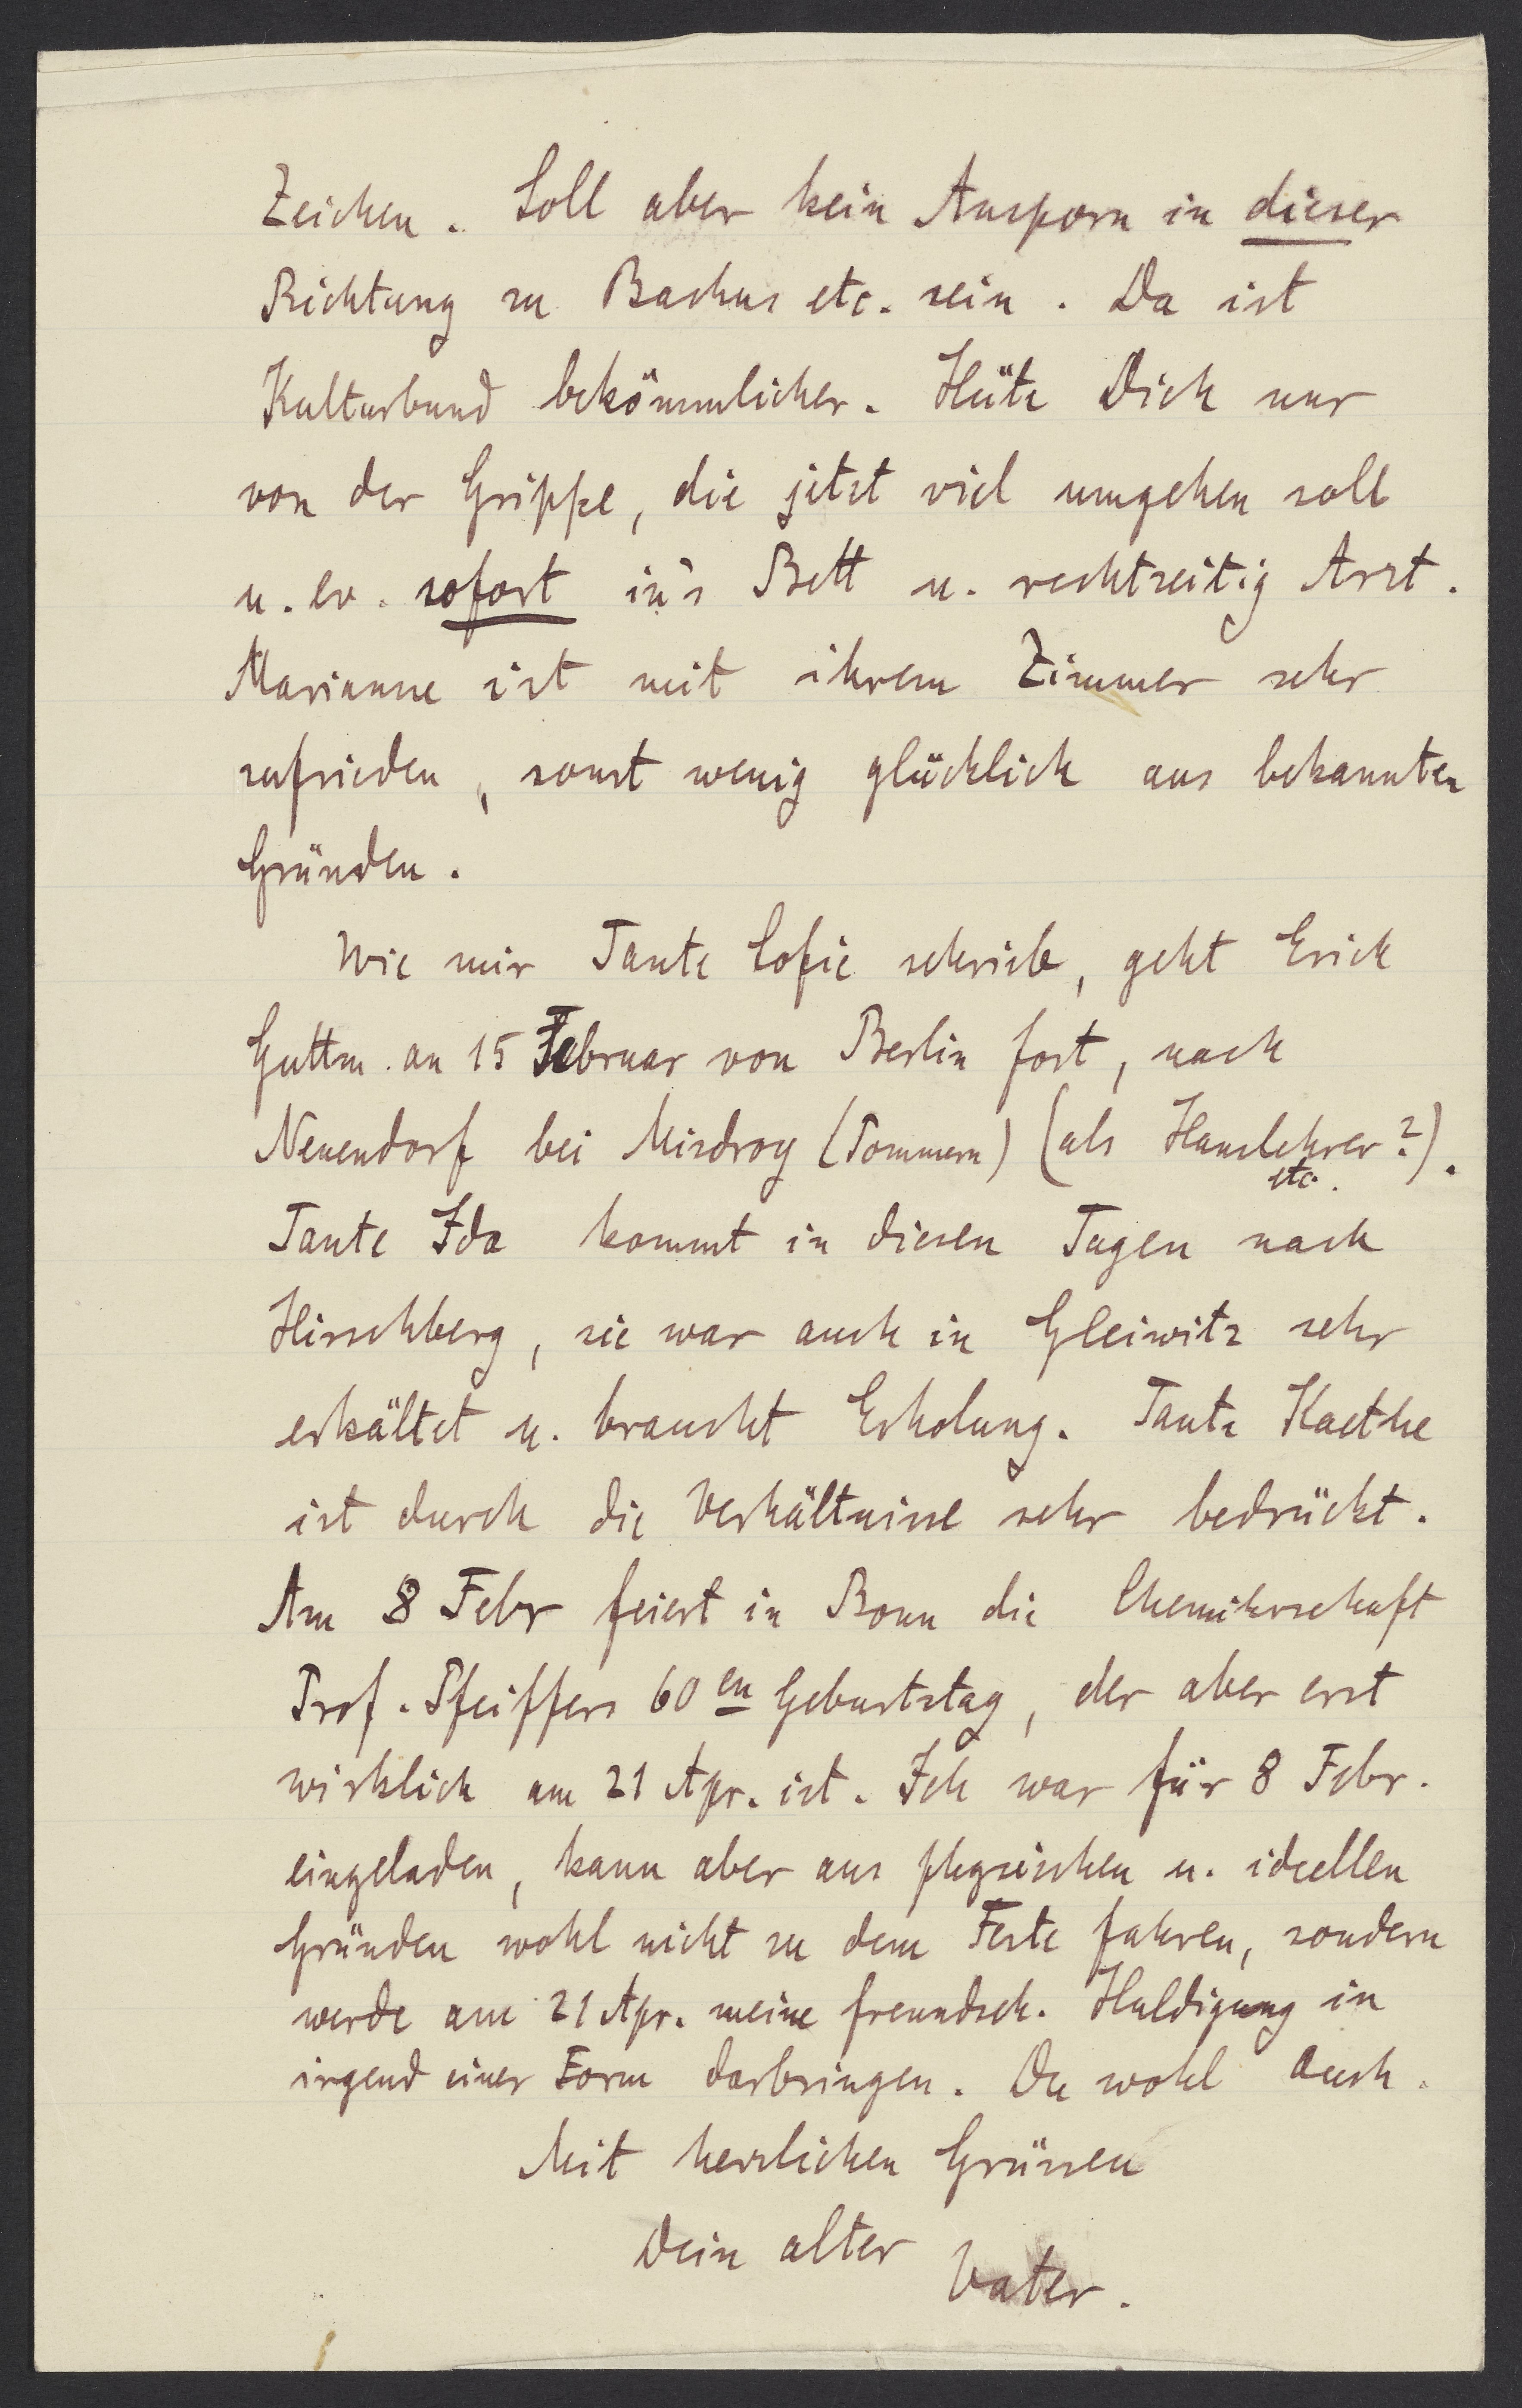 Zeichen. Soll aber kein Ansporn in dieser
Richtung zu Bachus etc. sein. Da ist
Kulturbund bekömmlicher. Hüte Dich nur
von der Grippe, die jetzt viel umgehen soll
u. ev. sofort in's Bett u. rechtzeitig Arzt.
Marianne ist mit ihrem Zimmer sehr
zufrieden, sonst wenig glücklich aus bekannten
Gründen.
Wie mir Tante Sofie schrieb, geht Erich
Guttm. an 15 Februar von Berlin fort, nach
Neuendorf bei Misdroy (Pommern) (als Hauslehrer?).
etc.
Tante Ida kommt in diesen Tagen nach
Hirschberg, sie war auch in Gleiwitz sehr
erkältet u. braucht Erholung. Tante Kaethe
ist durch die Verhältnisse sehr bedrückt.
Am 8 Febr feiert in Bonn die Chemikerschaft
Prof. Pfeiffers 60en Geburtstag, der aber erst
wirklich am 21 Apr. ist. Ich war für 8 Febr.
eingeladen, kann aber aus physischen u. ideellen
Gründen wohl nicht zu dem Feste fahren, sondern
werde am 21 Apr. meine freundsch. Huldigung in
irgend einer Form darbringen. Du wohl auch.
Mit herzlichen Grüssen
Dein alter Vater.